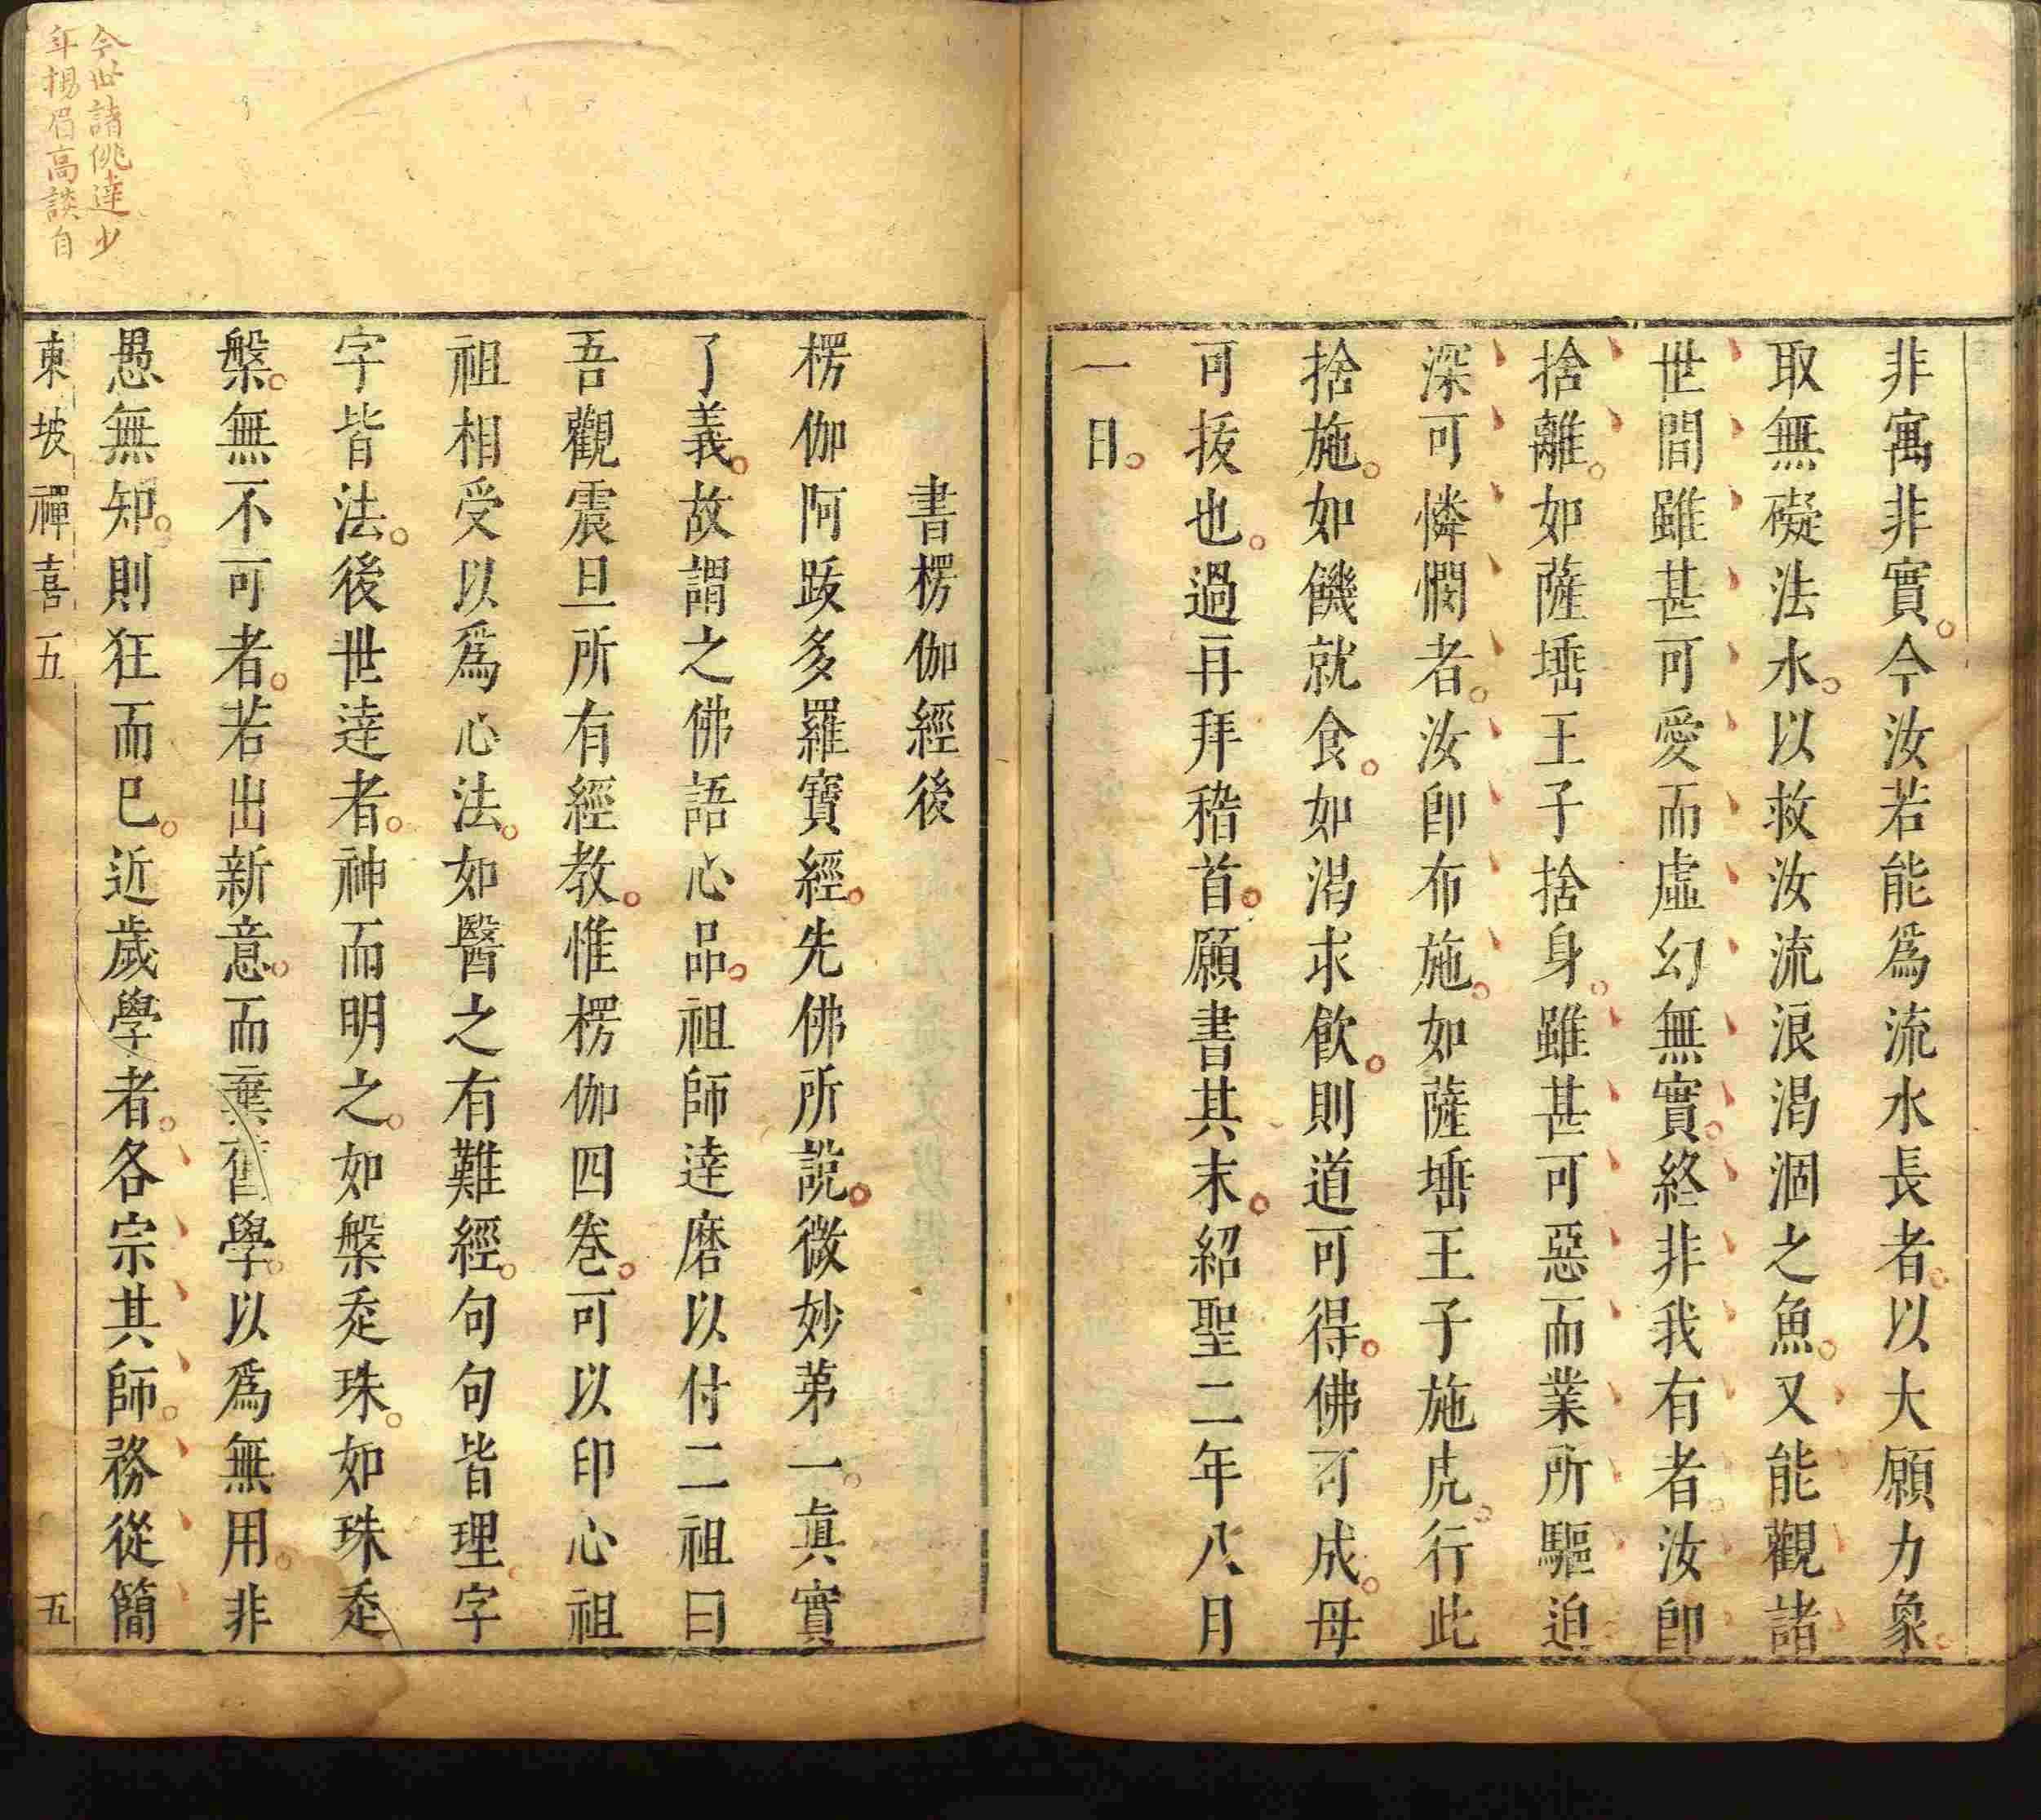 非寓非實今汝若能爲流水長者以大願力象
取無礙法水以救汝流浪渴涸之魚又能觀諸
世間雖甚可愛而虛幻無實終非我有者汝卽
捨離如薩埵王子捨身雖甚可惡而業所驅迫
深可憐憫者汝卽布施如薩埵王子施虎行此
捨施如饑就食如渴求飲則道可得佛可成母
可拔也過再拜稽首願書其末紹聖二年八月
一日
書楞伽經後
楞伽阿跋多羅寶經先佛所說微妙第一眞實
了義故謂之佛語心品祖師達磨以付二祖曰
吾觀震旦所有經教惟楞伽四卷可以印心祖
祖相受以爲心法如醫之有難經句句皆理字
字皆法後世達者神而明之如槃走珠如珠走
槃無不可者若出新意而棄舊學以爲無用非
愚無知則狂而已近歲學者各宗其師務從簡
東坡禪喜五 五
今世諸佻達少
年揚眉高談自